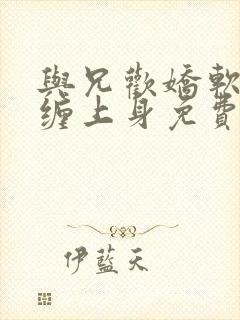 與兄歡嬌軟
纏上身免費
伊藍天